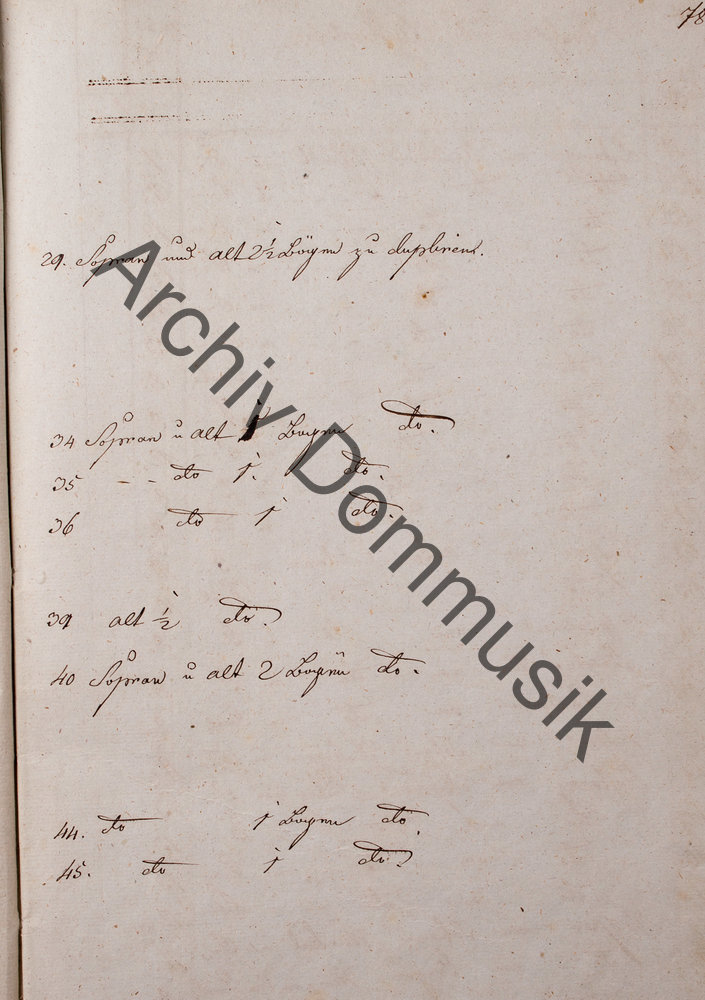 78
29. Sopran und alt 2½ Bögen zu dupliren.
34 Sopran u alt 1 Bogen do.
35 - - do 1. do.
36 do 1 do.
39 alt ½ do.
40 Sopran u alt 2 Bögen do.
44. do 1 Bogen do.
45. do 1 do.
Archiv Dommusik